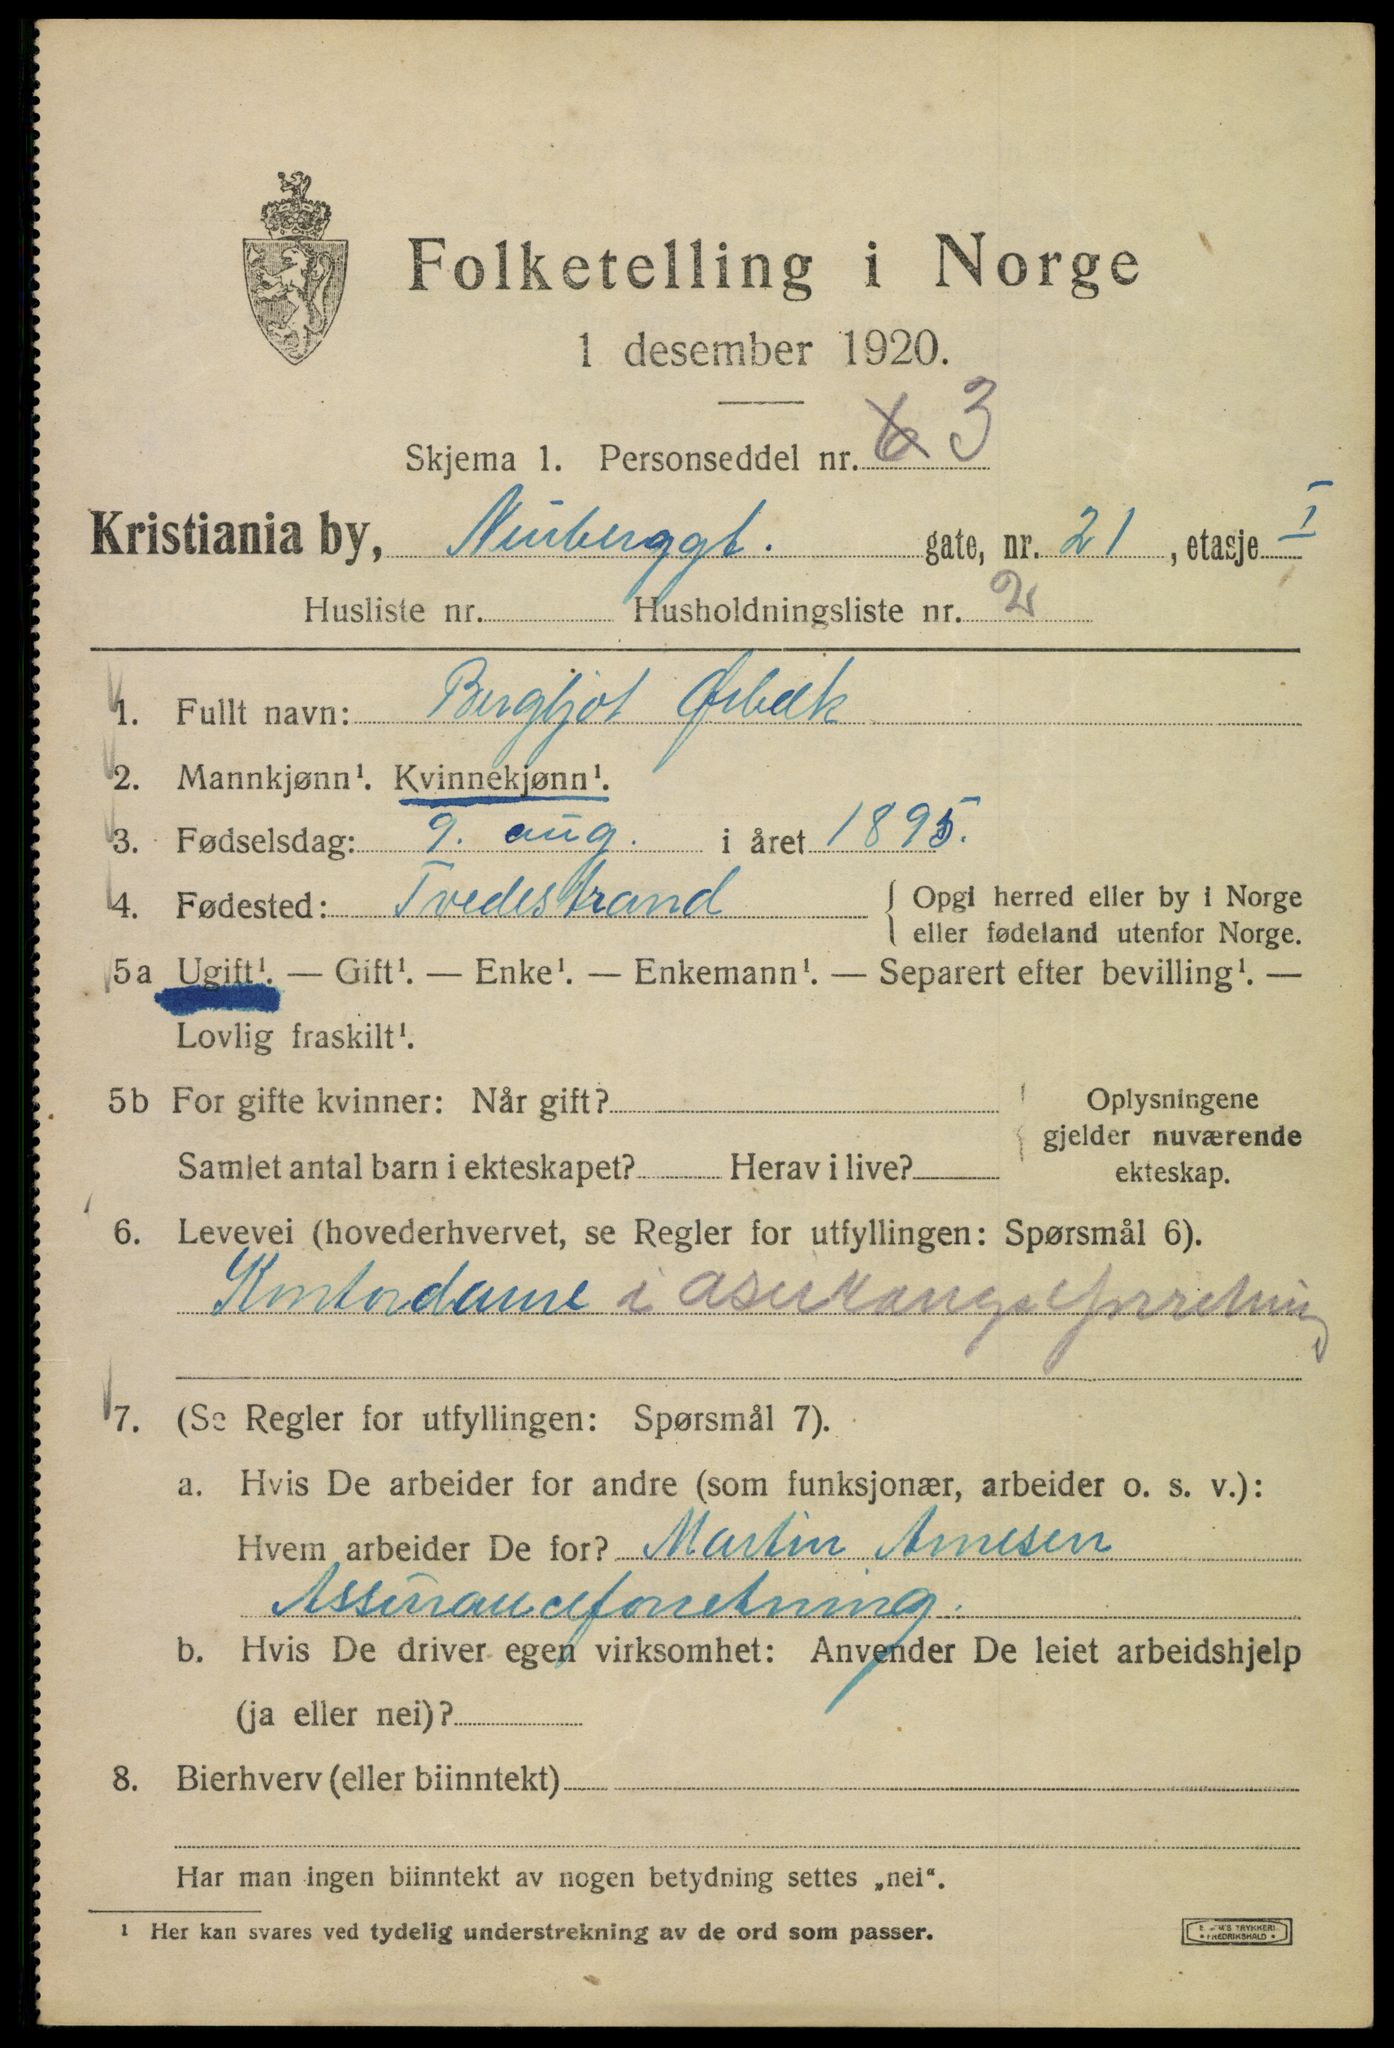 Folketelling i Norge
1 desember 1920.
Skjema 1. Personseddel nr. 6 3
Kristiania by, Neuberggt. gate, nr. 21, etasje I
Husliste nr. Husholdningsliste nr. 2
1. Fullt navn: Bergljot Ørbæk
2. Mannkjønn¹. Kvinnekjønn¹.
3. Fødselsdag: 9. aug. i året 1895.
4. Fødested: Tvedestrand { Opgi herred eller by i Norge
eller fødeland utenfor Norge.
5a Ugift¹. — Gift¹. — Enke¹. — Enkemann¹. — Separert efter bevilling¹. —
Lovlig fraskilt¹.
5b For gifte kvinner: Når gift? Oplysningene
gjelder nuværende
Samlet antal barn i ekteskapet? Herav i live? ekteskap.
6. Levevei (hovederhvervet, se Regler for utfyllingen: Spørsmål 6).
Kontordame i asurangseforretning
7. (Se Regler for utfyllingen: Spørsmål 7).
a. Hvis De arbeider for andre (som funksjonær, arbeider o. s. v.):
Hvem arbeider De for? Martin Arnesen
Assuranceforretning.
b. Hvis De driver egen virksomhet: Anvender De leiet arbeidshjelp
(ja eller nei)?
8. Bierhverv (eller biinntekt)
Har man ingen biinntekt av nogen betydning settes „nei“.
¹ Her kan svares ved tydelig understrekning av de ord som passer.
TRYKKERI
FREDRIKSHALD